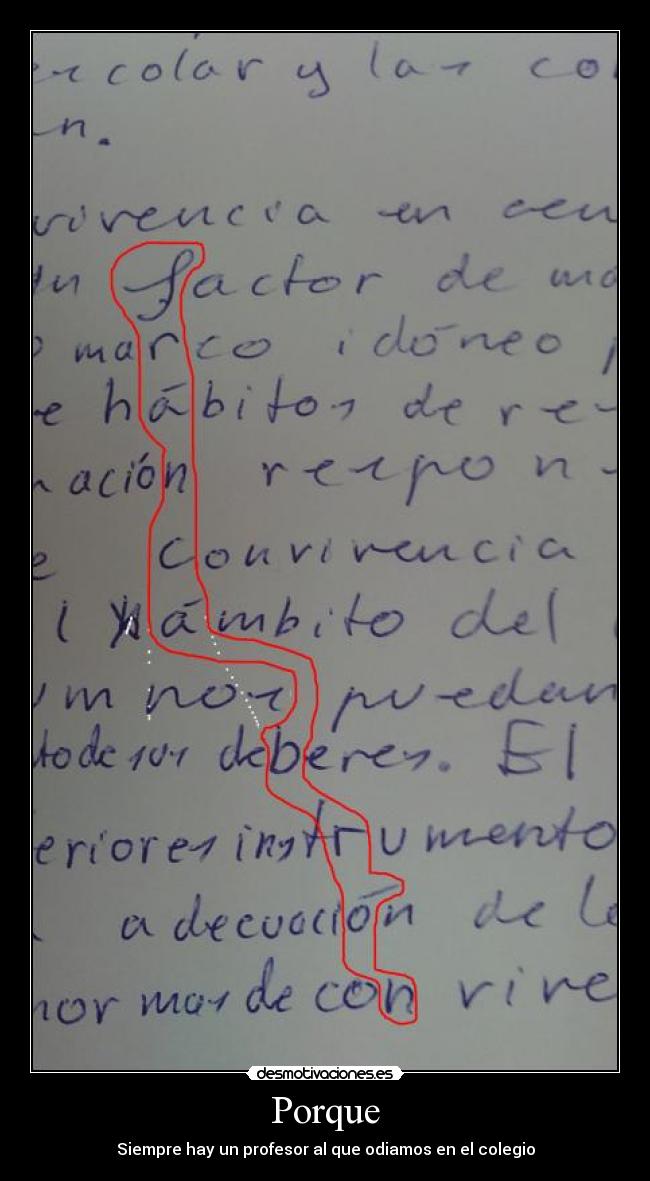 escolar y las co
n.
vivencia en cen
un factor de ma
marco idóneo p
e hábitos de re
nación respon
e convivencia
l ámbito del
umnos puedan
to de sus deberes. El
eriores instrumento
adecuación de l
normas de convive
desmotivaciones.es
Porque
Siempre hay un profesor al que odiamos en el colegio